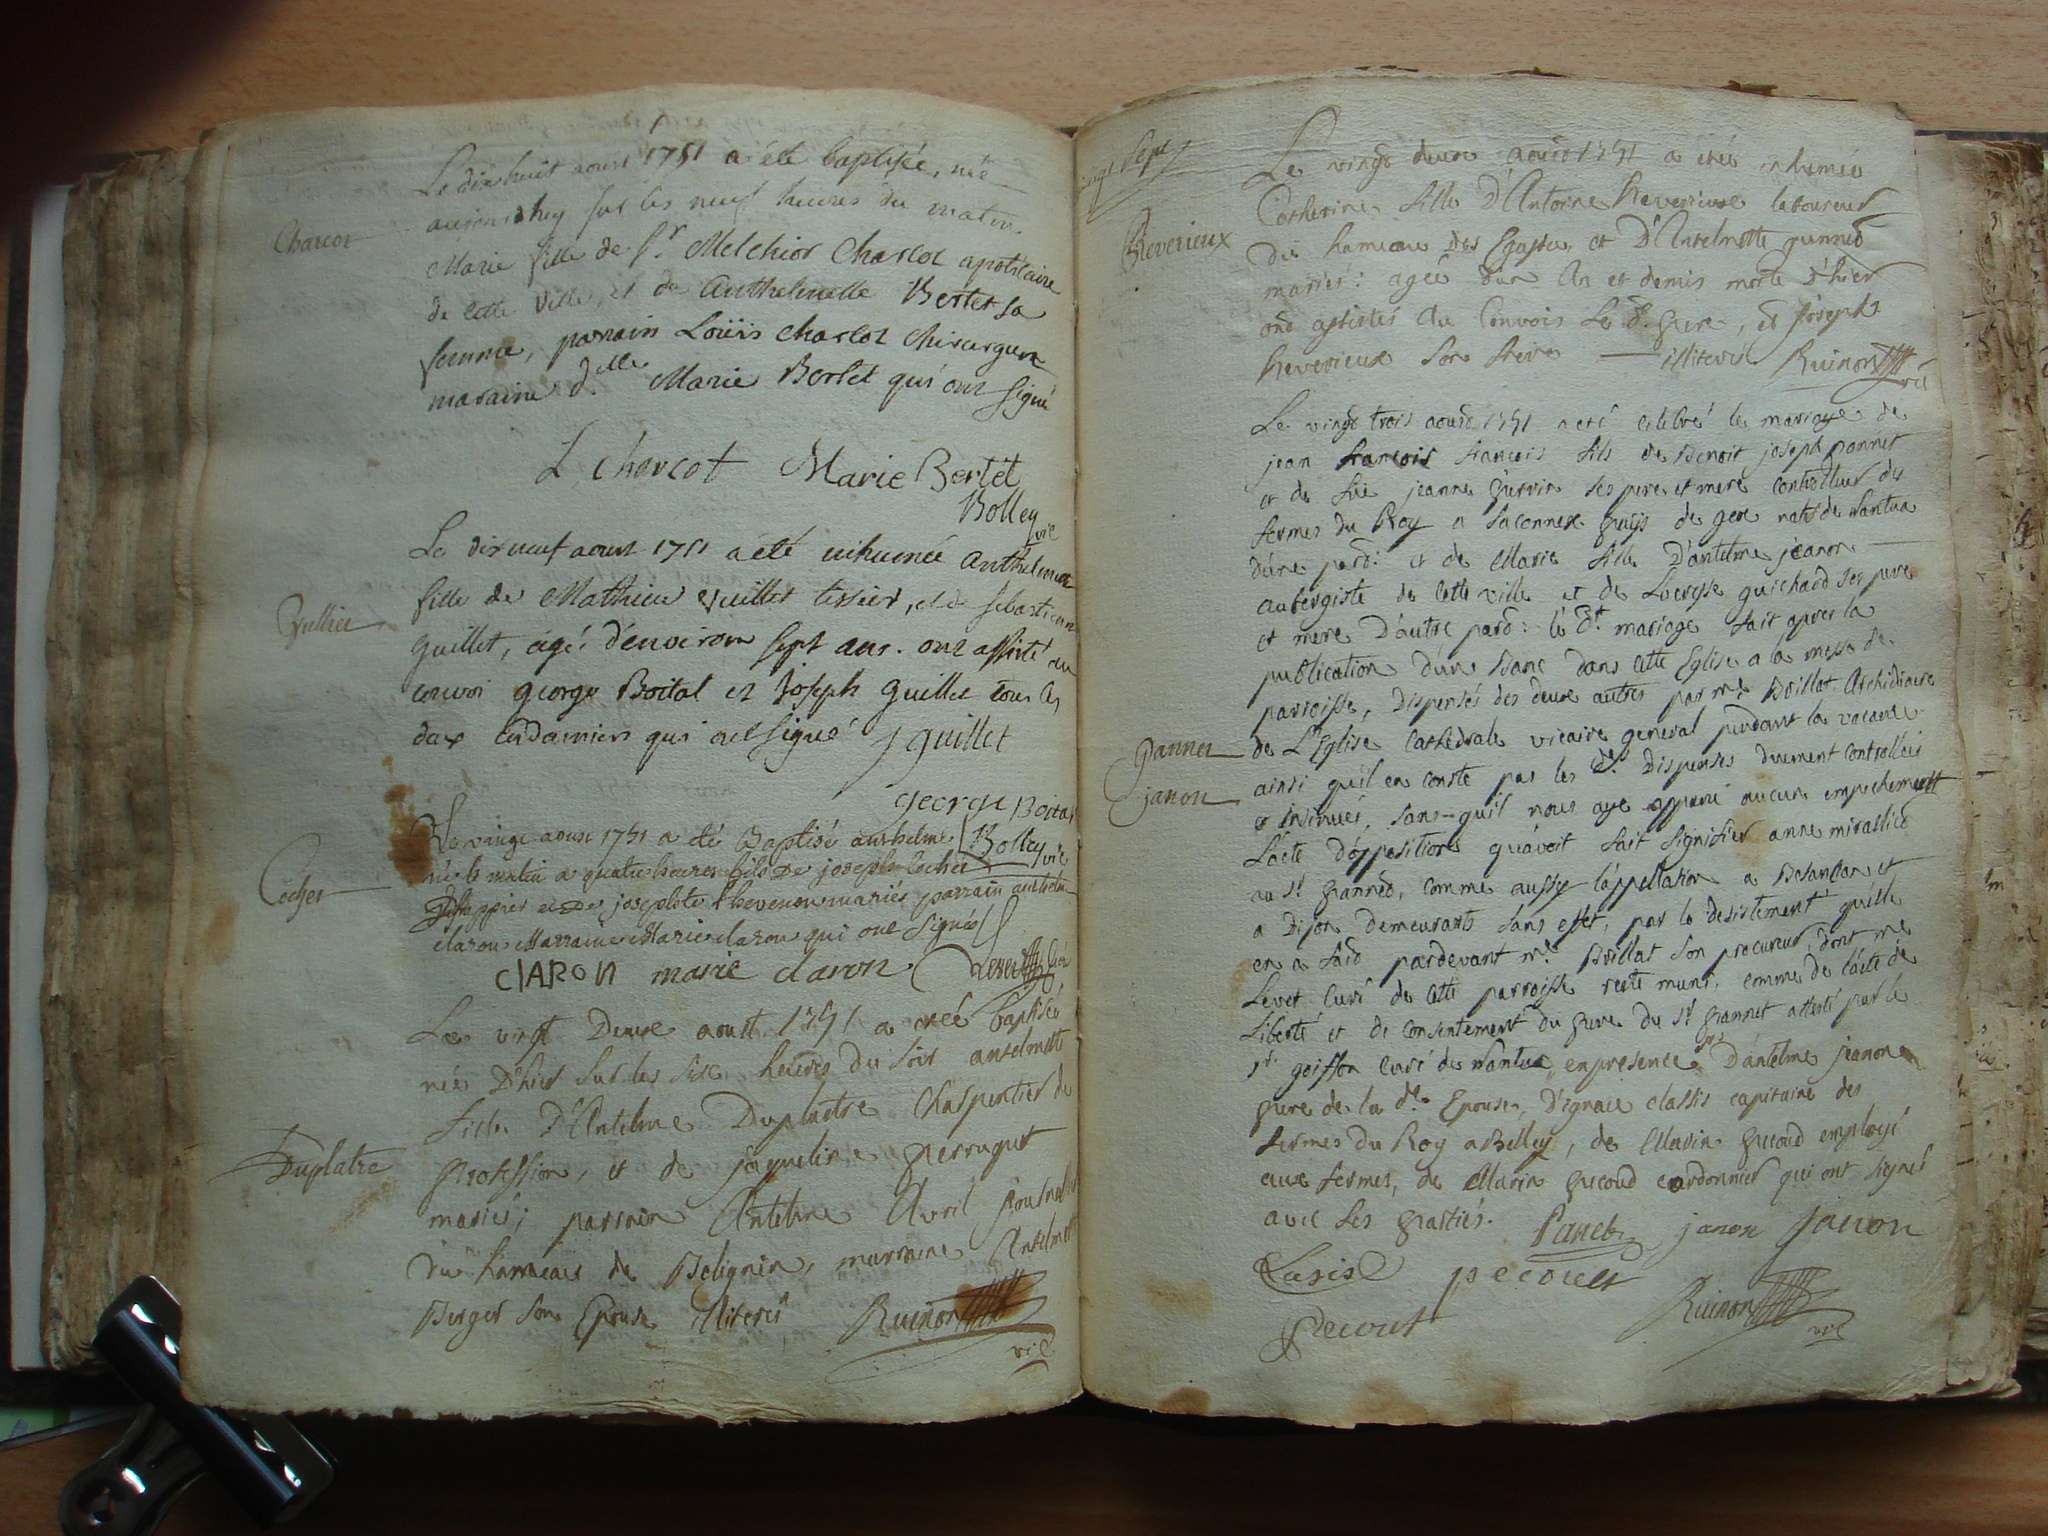 Le dix huit aoust 1751 a été baptisée, née
aujourdhuy sur les neuf heures du matin
Charcot
Marie fille de Sr Melchior Charcot apoticaire
de cette ville, et de Anthelmette Bertet sa
femme, parrain Loüis Charcot chirurgien
maraine dlle Marie Bertet qui ont signé
L Charcot Marie Bertet
Bolley vic
Le dix neuf aoust 1751 a été inhumée Anthelmette
fille de Mathieu guillet tissier, et de sebastienne
guillet, agé d'environ sept ans. ont assisté au
convoi george Boital et Joseph guillet tous les
deux cordonniers qui ont signé J guillet
george Boital
Bolley vic
Le vingt aoust 1751 a été Baptisé anthelme
né le matin a quatre heures fils de joseph cocher
Cocher
et de josephte thevenon mariés parrain anthelme
claron Marraine Marie claron qui ont signés
CLARON marie claron
Le vingt Deux aoust 1751 a etée baptisée
née D'hier sur les six heures du soir anselmette
fille D'Antelme Duplatre Charpentier de
Duplatre
profession, et de jaqueline perruquet
mariés; parrain Antelme Avril
du hameau de Belignin, marraine Anselmette
Berger son Epouse illiterés Ruinon
vic
vingt sept
Le vingt deux aoust 1751 a etée inhumée
Catherine fille D'Antoine Reverieux laboureur
Reverieux
du hameau des Ecassa, et D'Anselmette
mariés: agée d'un An et demis morte d'hier
ont assistés au Convois Le dt. pere, et Joseph
Reverieux son frere illiterés Ruinon vic
Le vingt trois aoust 1751 a eté celebré le mariage de
jean françois françois fils de Benoit joseph pannet
et de füe jeanne ses pere et mere controlleur des
fermes du Roy a saconnex païs de gex natif de Nantua
d'une part: et de Marie fille D'antelme jeanon
aubergiste de cette ville et de Lucresse guichard ses pere
et mere D'autre part: le dt. mariage fait apres la
publication d'un Banc dans cette Eglise a la messe de
parroisse, dispensés des deux autres par mr Boillat Archidiacre
de L'Eglise Cathedrale vicaire general pendant la vacance
Pannet
janon
ainsi qu'il en conste par les des. Dispenses duement controllées
et insinuées, sans-qu'il nous aye apparu aucun empechement
L'acte d'opposition qu'avoit fait signifier anne
au Sr pannet, comme aussy l'appellation a Besançon et
a Dijon demeurants sans effet, par le desistement qu'elle
en a fait pardevant me. Brillat son procureur, dont me
Levet curé de cette parroisse reste muni, comme de l'acte de
liberté et de consentement du pere du Sr pannet attesté par le
Sr. goiffon curé de Nantua, en presence D'antelme jeanon
pere de la de. Epouse, D'ignace classis capitaine des
fermes du Roy a Belley, de Marin pecoud employé
aux fermes, de Marin pecoud cordonnier qui ont signés
avec les partiés. Panet janon Janon
Clasis pecoult
Pecout Ruinon
vic